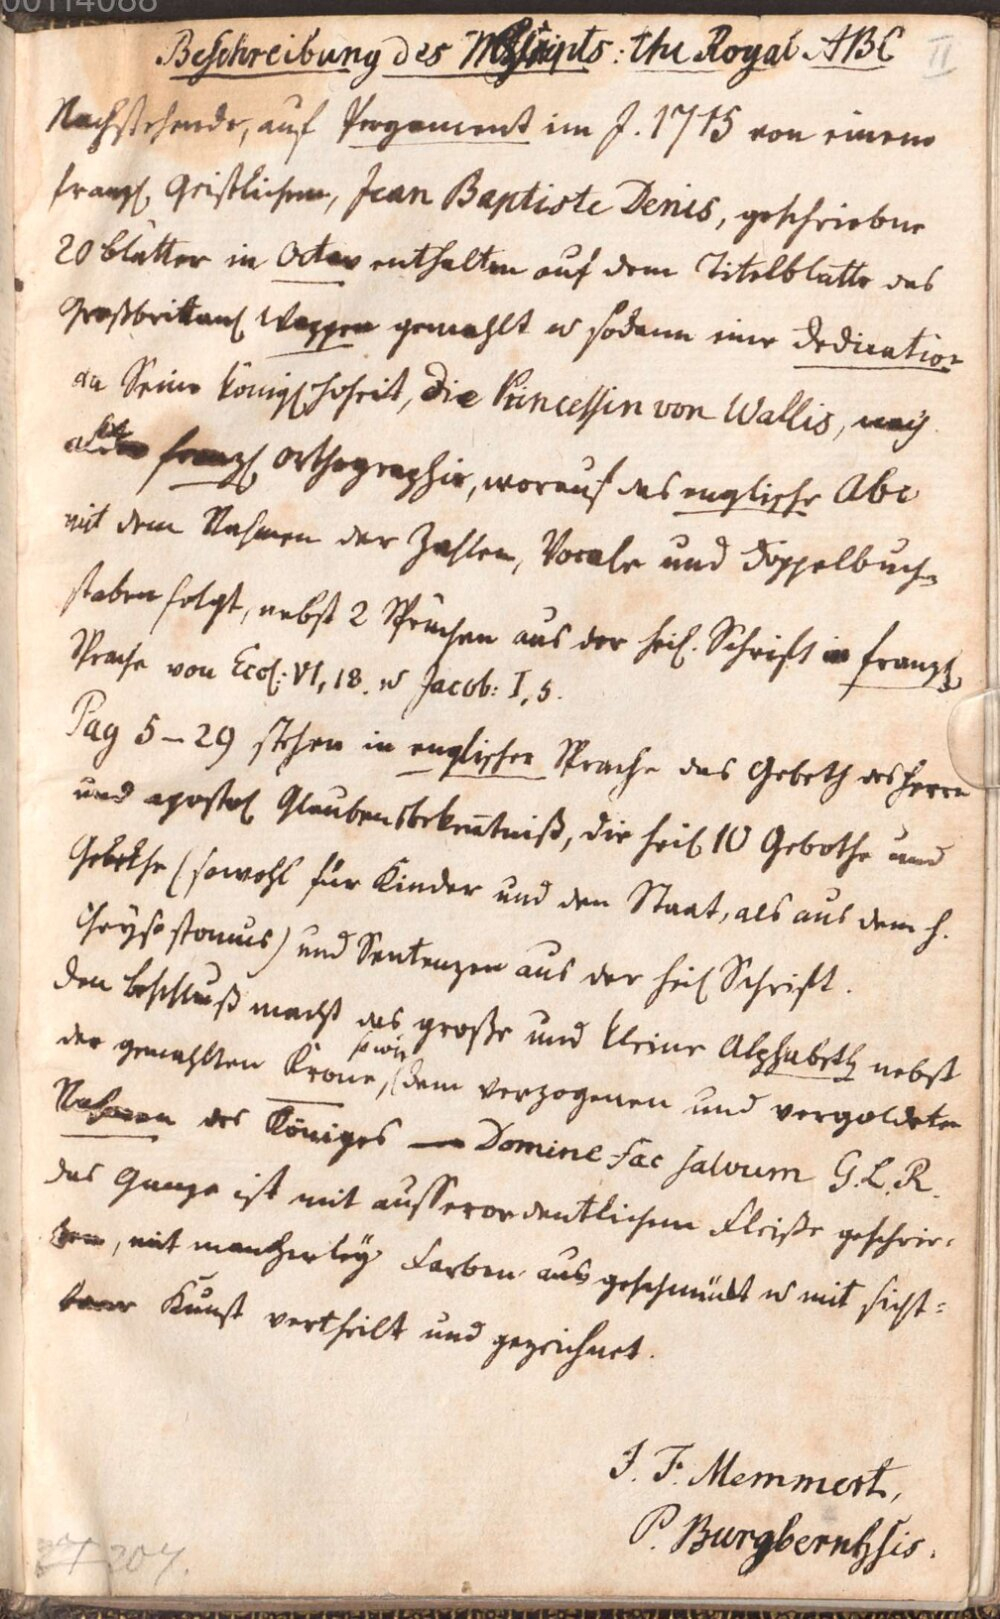 00114088
II
Beschreibung des Mscripts: the Royal ABC
Nachstehende, auf Pergament im J. 1715 von einem
franz. Geistlichen, Jean Baptiste Denis, geschriebne
20 blätter in Octav enthalten auf dem Titelblatte das
Großbrittan. Wappen gemahlt u sodann eine Dedication
an Seine königl. Hoheit, die Princessin von Wallis, nach
alter franz. Orthographie, worauf das englische Abc
mit dem Nahmen der Zahlen, Vocale und Doppelbuch-
staben folgt, nebst 2 Sprüchen aus der heil. Schrift in franz.
Sprache von Eccl: VI, 18. u Jacob: I, 5.
Pag 5–29 stehen in englischer Sprache das Gebeth des Herrn
und apostol. Glaubensbekenntniß, die heil. 10 Gebothe und
Gebethe (sowohl für Kinder und den Staat, als aus dem h.
Chrysostomus) und Sentenzen aus der heil. Schrift.
Den beschluß macht das große und kleine Alphabeth nebst
der gemahlten Krone, sowie dem verzogenen und vergoldeten
Nahmen des Königes — Domine fac salvum G. L. R.
das Ganze ist mit ausserordentlichem Fleiße geschrie-
ben, mit mancherley Farben ausgeschmückt u mit sicht-
barer Kunst vertheilt und gezeichnet.
J. F. Memmert,
P. Burgbernhsis.
207.